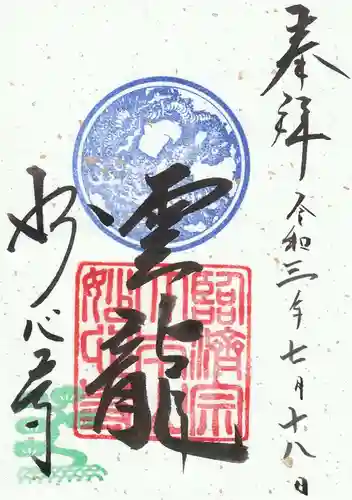 奉拝
令和三年七月十八日
雲龍
妙心寺
臨済宗
大本山
妙心寺